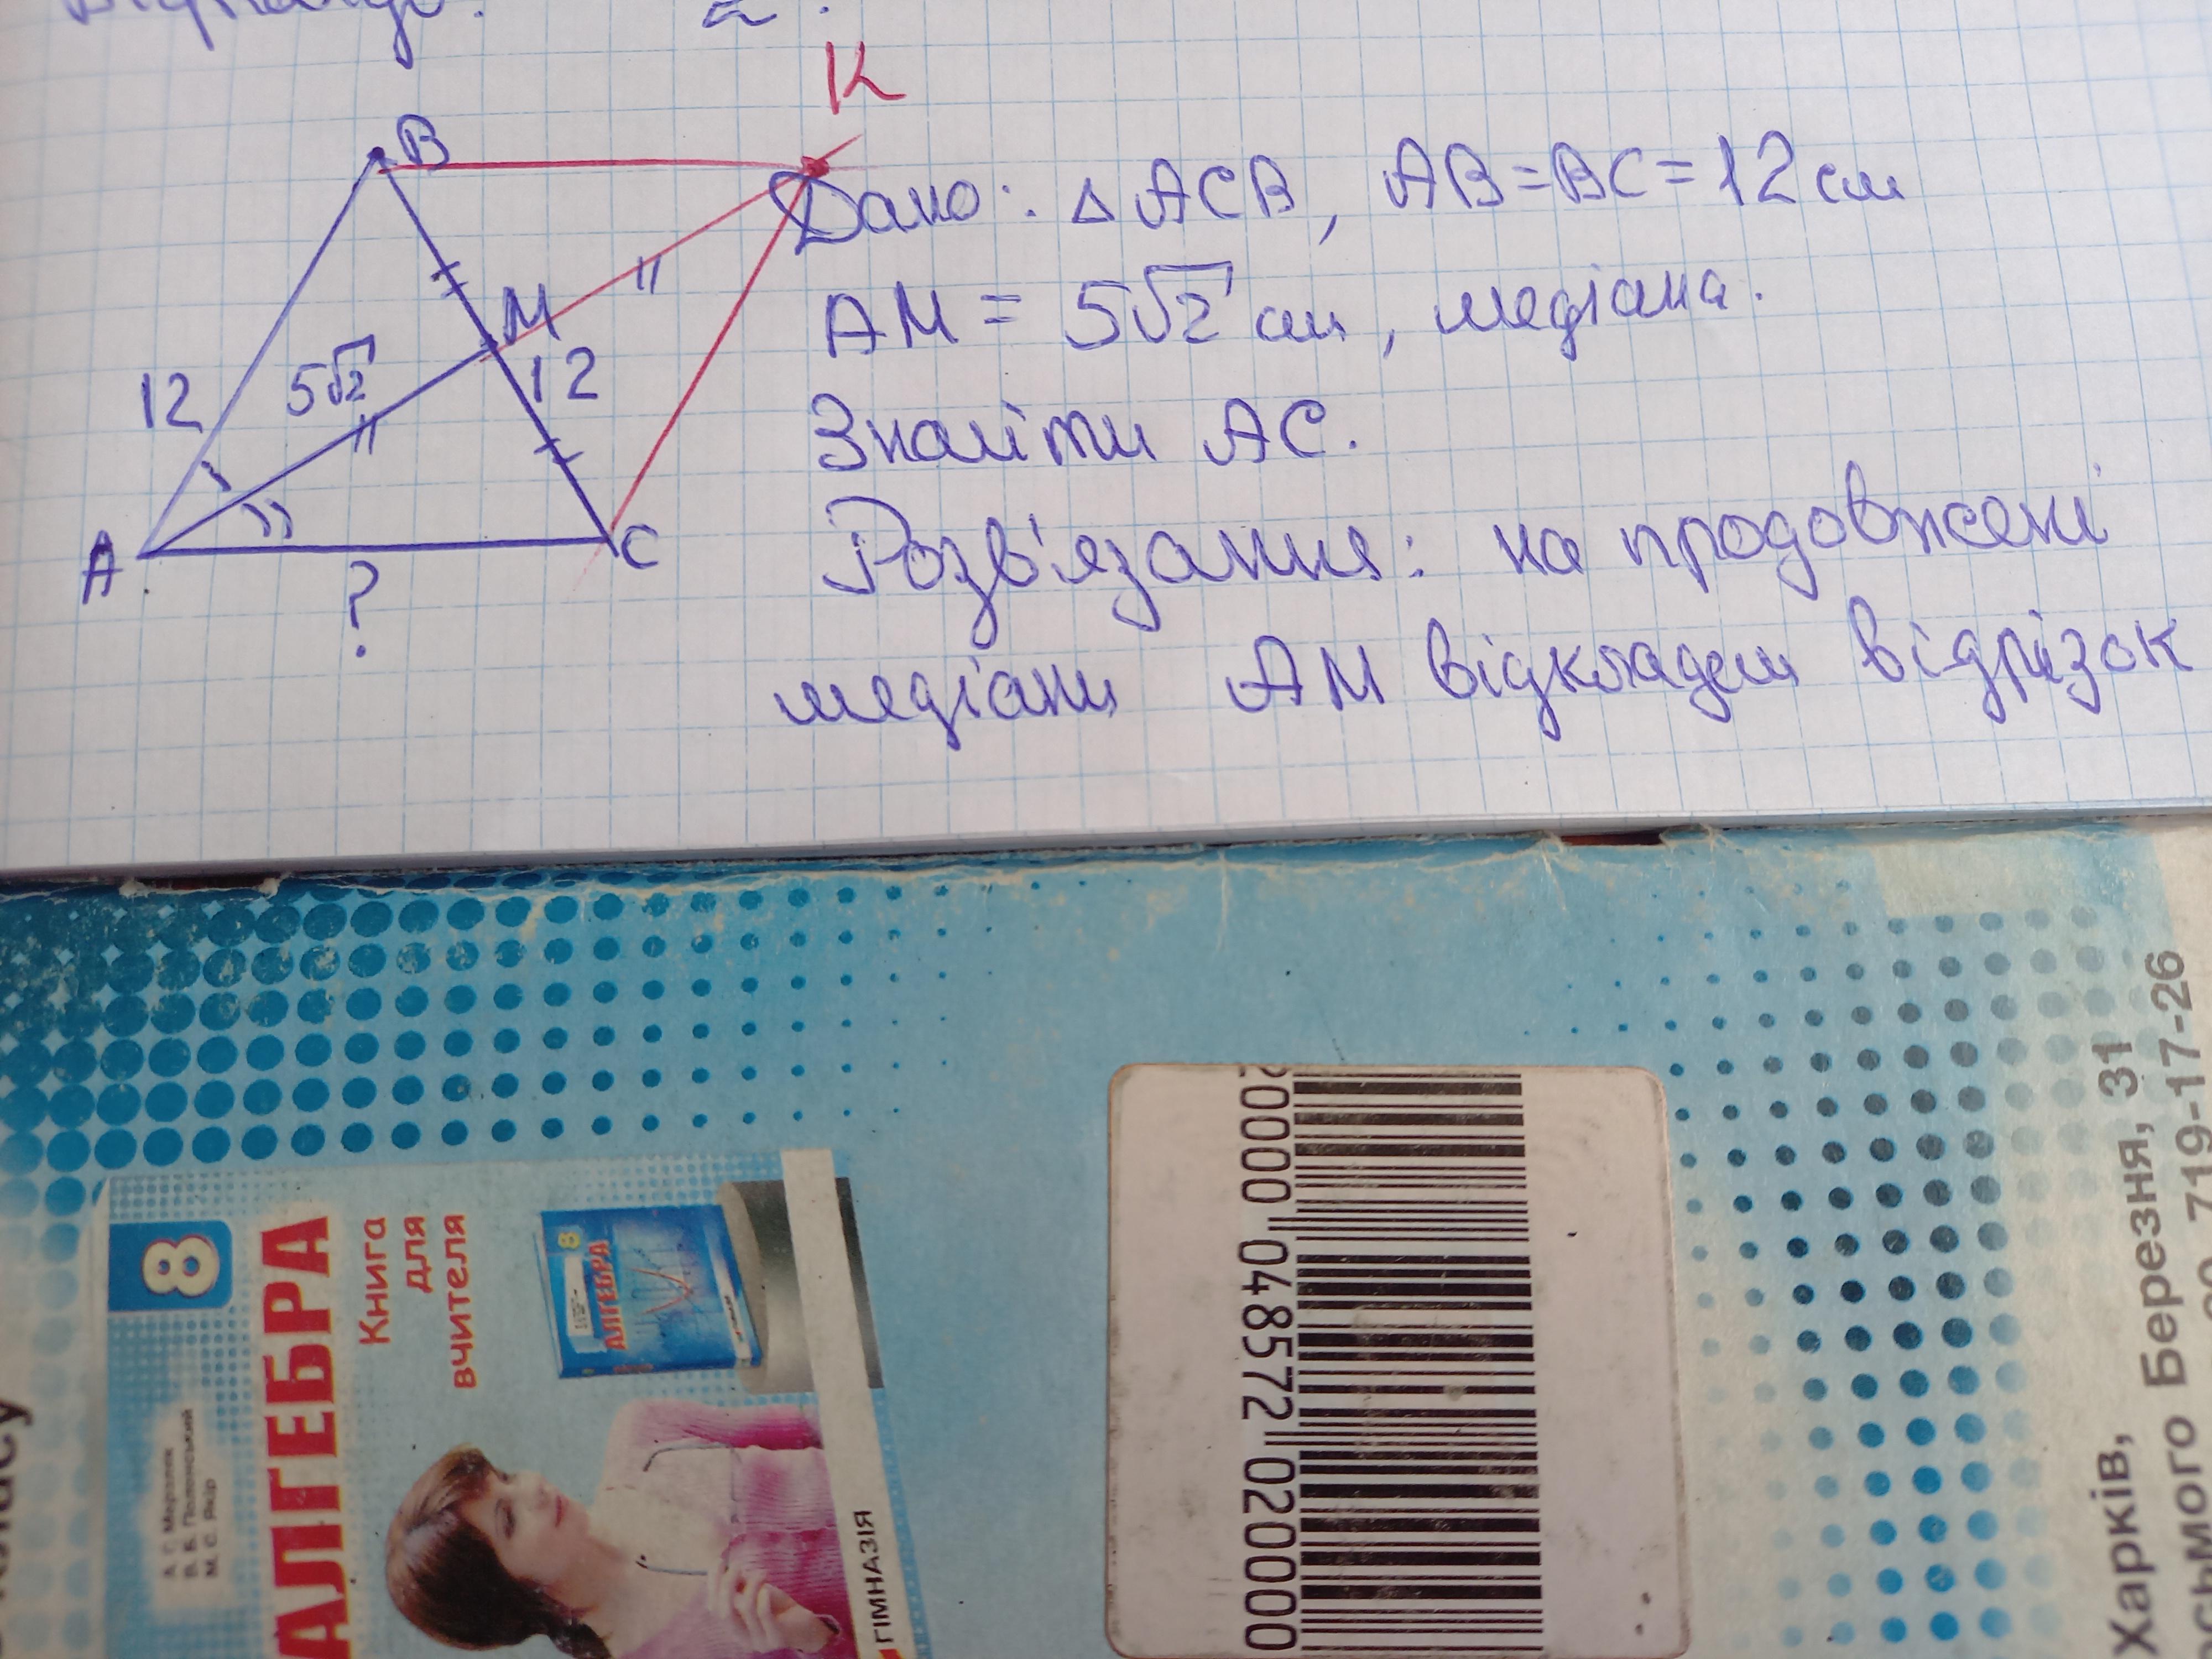 K
B
Дано: △ ACB, AB=BC=12 см
M
AM = 5√2 см, медіана.
12
5√2
12
Знайти AC.
A
C
?
Розв'язання: на продовжені
медіани AM відкладем відрізок
8
АЛГЕБРА
Книга
для
вчителя
А. Г. Мерзляк
В. Б. Полонський
М. С. Якір
8
АЛГЕБРА
ГІМНАЗІЯ
2000 048572 020000
Харків,
Березня, 31
719-17-26